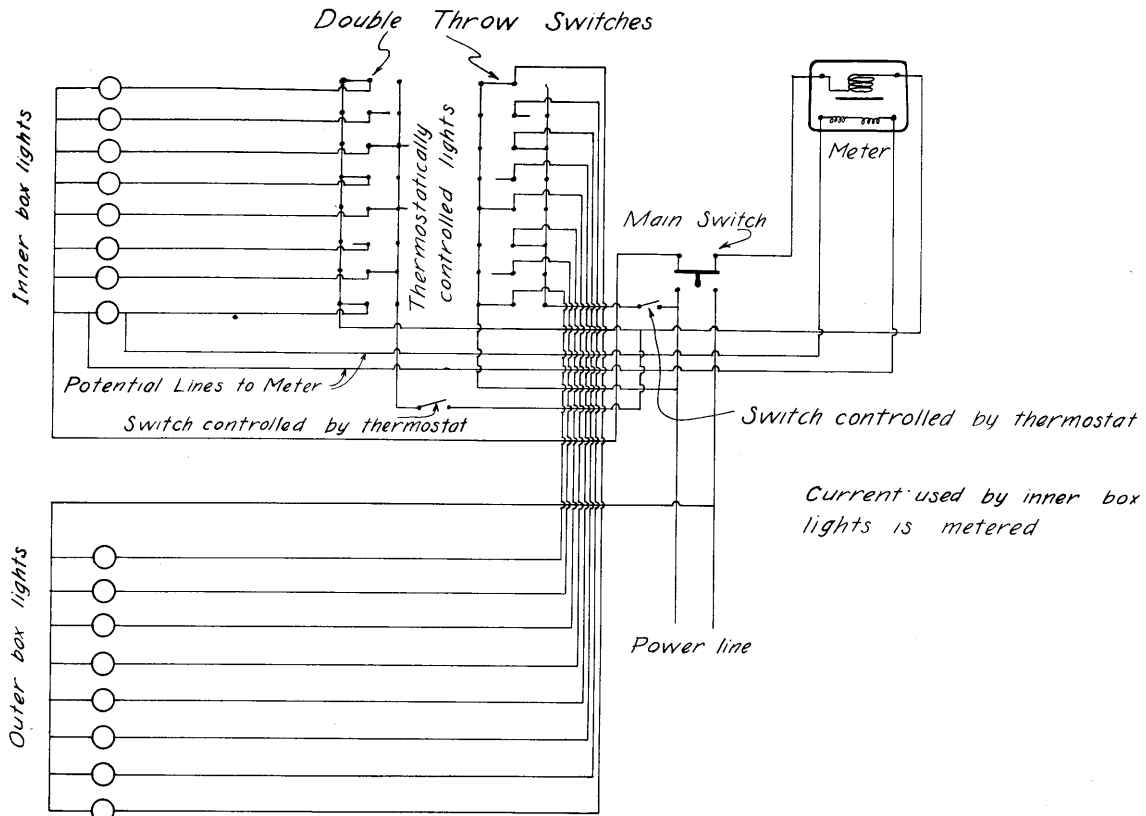 Double Throw Switches
Inner box lights
Thermostatically
controlled lights
Meter
Main Switch
Potential Lines to Meter
Switch controlled by thermostat
Switch controlled by thermostat
Current used by inner box
lights is metered
Outer box lights
Power line